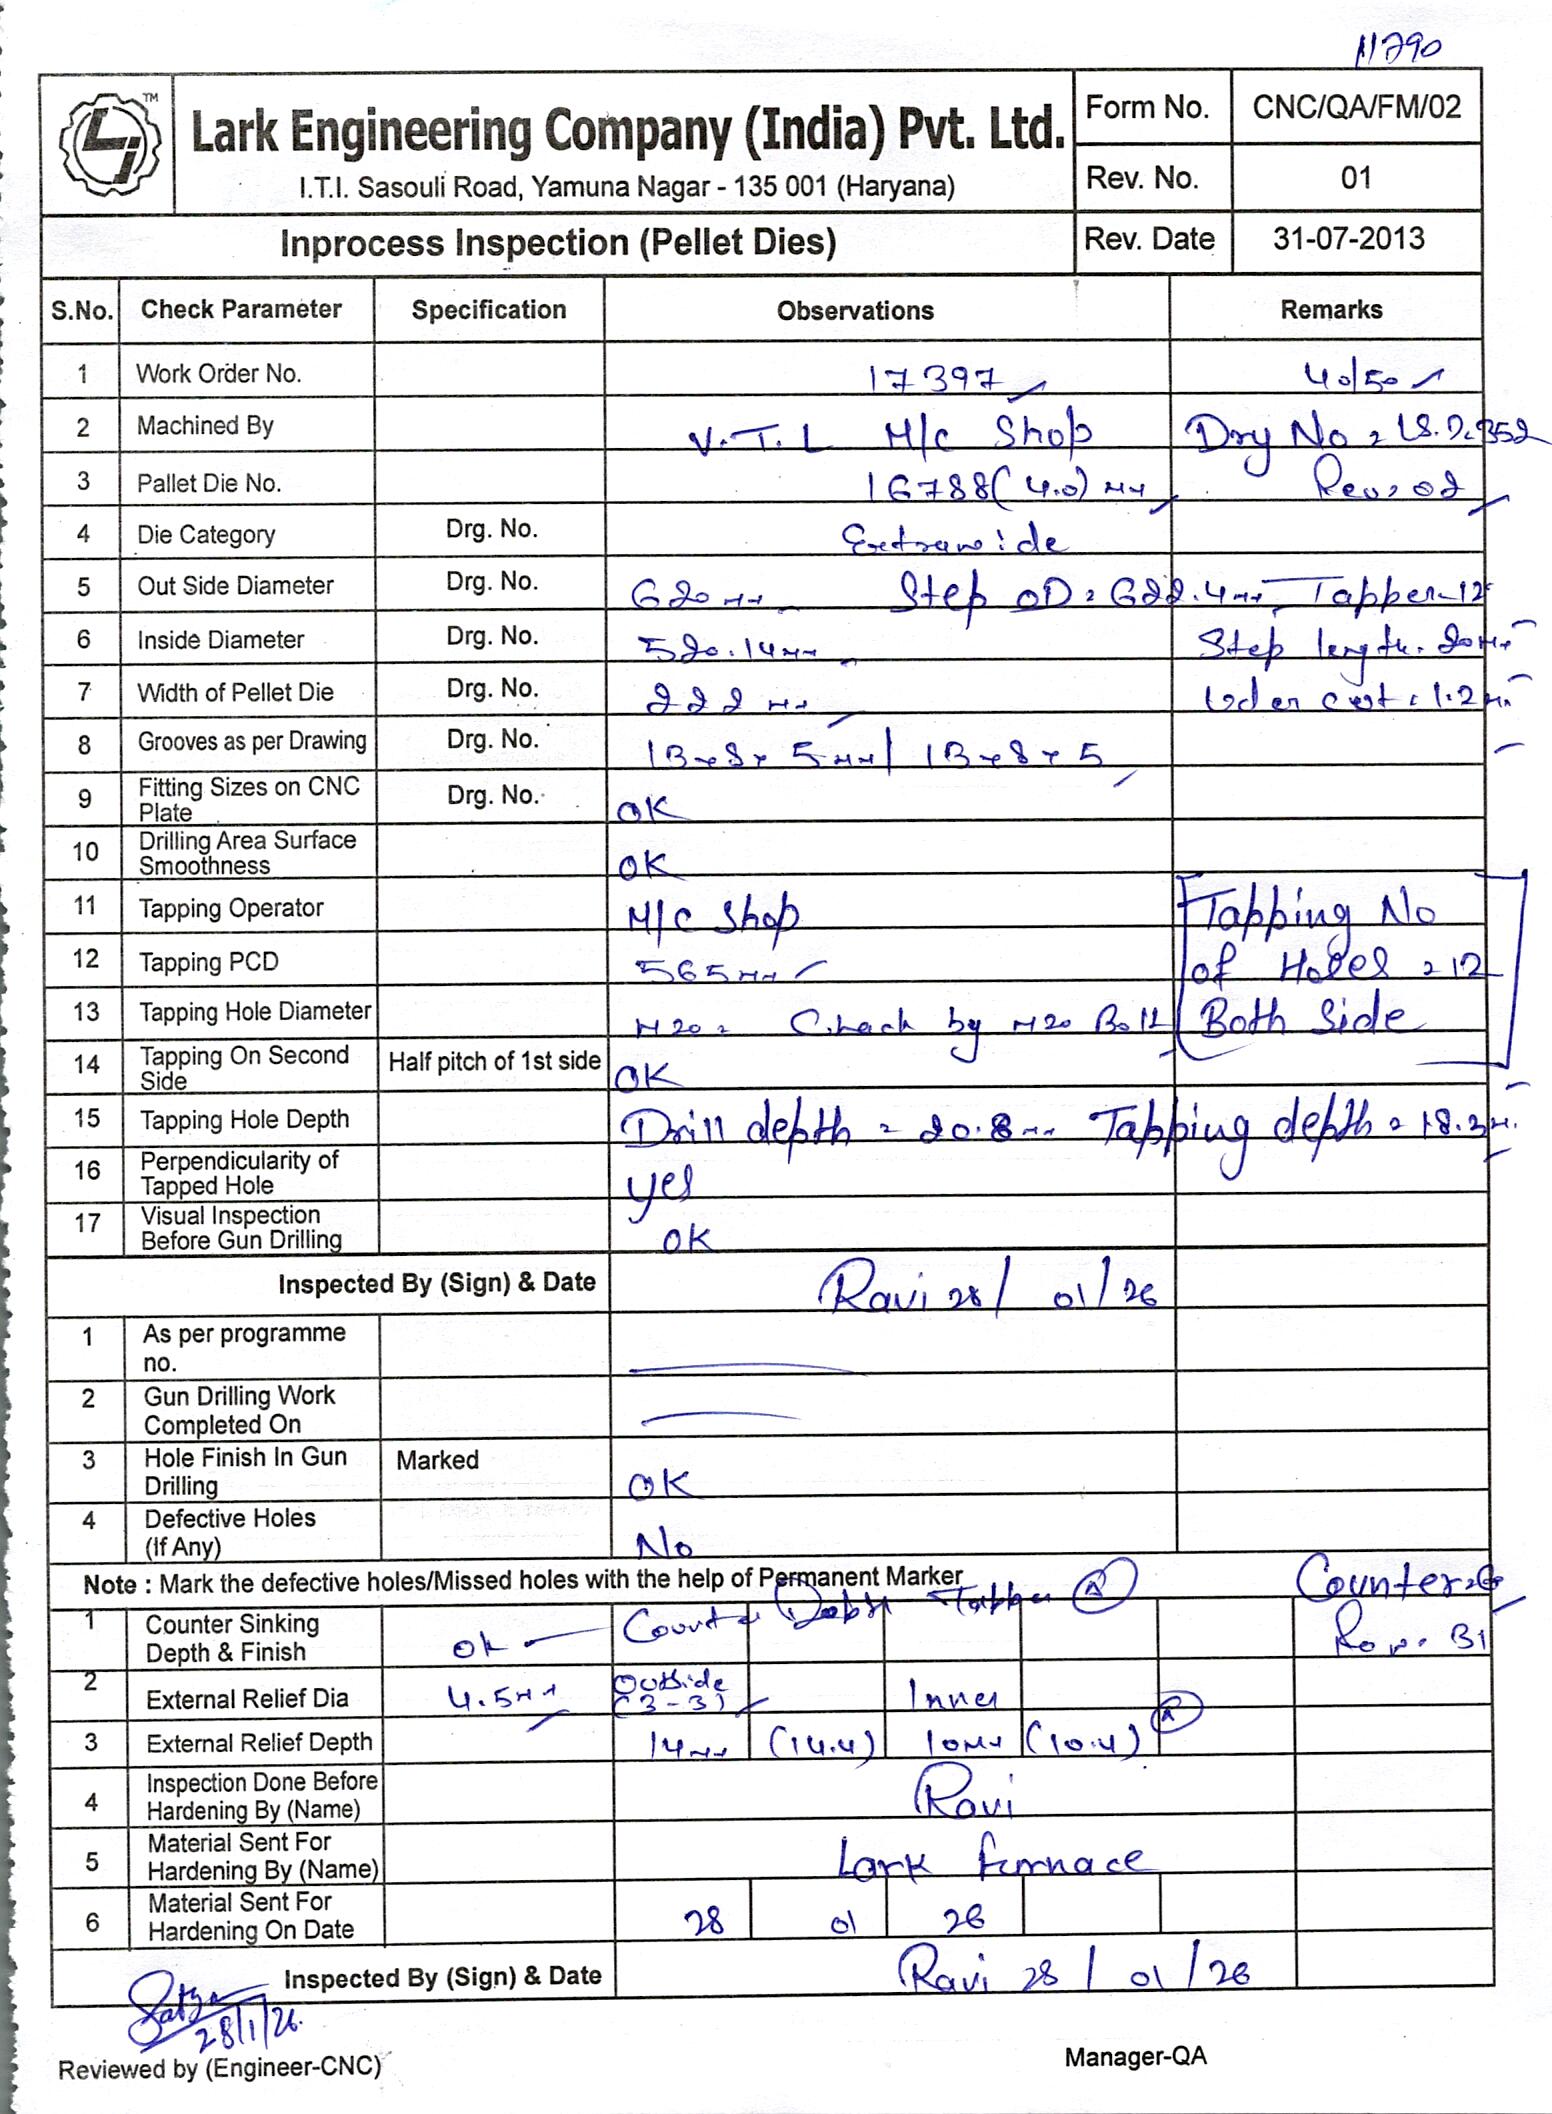 11790
Lark Engineering Company (India) Pvt. Ltd.
I.T.I. Sasouli Road, Yamuna Nagar - 135 001 (Haryana)
Form No. CNC/QA/FM/02
Rev. No. 01
Inprocess Inspection (Pellet Dies) Rev. Date 31-07-2013
S.No. Check Parameter Specification Observations Remarks
1 Work Order No. 17397 40/50
2 Machined By V.T.L M/c Shop Drg No =
3 Pallet Die No. 16788 (4.0) mm Rev = 02
4 Die Category Drg. No. Extrawide
5 Out Side Diameter Drg. No. 620 mm Step OD = 622.4 mm Tapper-12°
6 Inside Diameter Drg. No. 520.14 mm Step length = 20 mm
7 Width of Pellet Die Drg. No. 222 mm Under cut = 1.2 mm
8 Grooves as per Drawing Drg. No. 13 x 8 x 5 mm / 13 x 8 x 5
9 Fitting Sizes on CNC Plate Drg. No. OK
10 Drilling Area Surface Smoothness OK
11 Tapping Operator M/C Shop Tapping No
12 Tapping PCD 565 mm of Holes = 12
13 Tapping Hole Diameter M20 = Check by M20 Bolt Both Side
14 Tapping On Second Side Half pitch of 1st side OK
15 Tapping Hole Depth Drill depth = 20.8 mm Tapping depth = 18.3 m.
16 Perpendicularity of Tapped Hole yes
17 Visual Inspection Before Gun Drilling OK
Inspected By (Sign) & Date Ravi 28/01/26
1 As per programme no.
2 Gun Drilling Work Completed On
3 Hole Finish In Gun Drilling Marked OK
4 Defective Holes (If Any) No
Note : Mark the defective holes/Missed holes with the help of Permanent Marker
1 Counter Sinking Depth & Finish ok Tapper
2 External Relief Dia 4.5 mm Outside (3-3) Inner
3 External Relief Depth 14 mm (14.4) 10 mm (10.4)
4 Inspection Done Before Hardening By (Name) Ravi
5 Material Sent For Hardening By (Name) Lark furnace
6 Material Sent For Hardening On Date 28 01 26
Inspected By (Sign) & Date Ravi 28/01/26
28/1/26.
Reviewed by (Engineer-CNC) Manager-QA